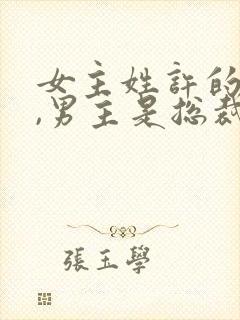 女主姓許的
,男主是总裁
張玉學